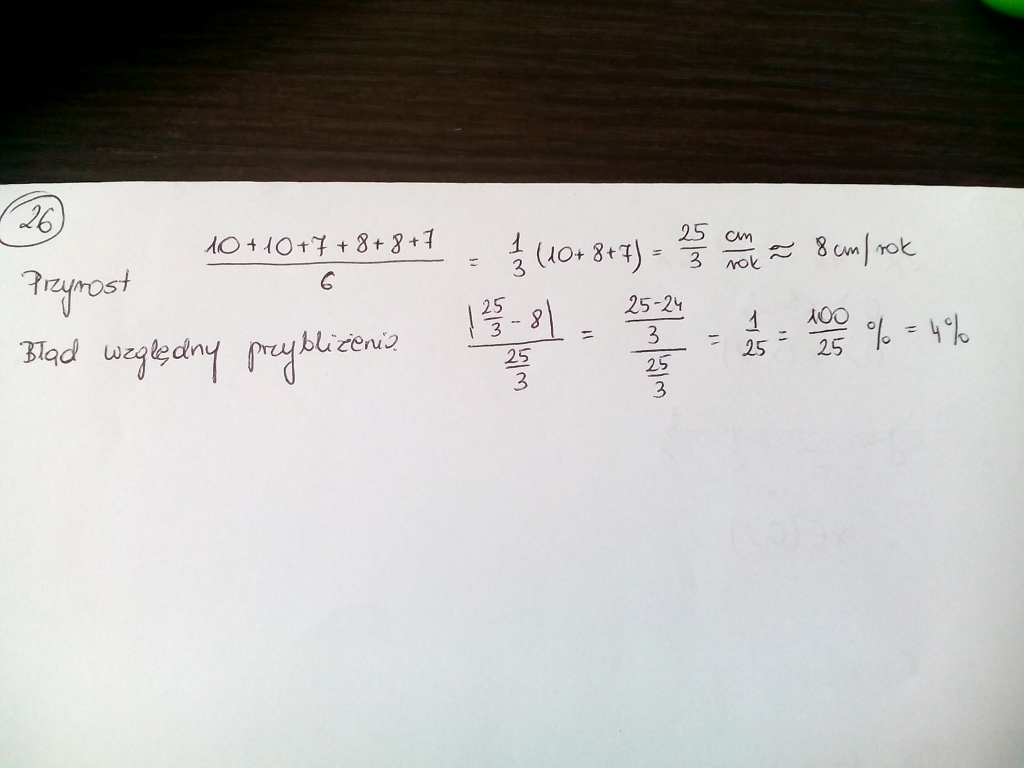 26
Przyrost (10+10+7+8+8+7)/6 = 1/3 (10+8+7) = 25/3 cm/rok ≈ 8 cm/rok
Błąd względny przybliżenia |25/3 - 8| / (25/3) = ((25-24)/3) / (25/3) = 1/25 = 100/25 % = 4%